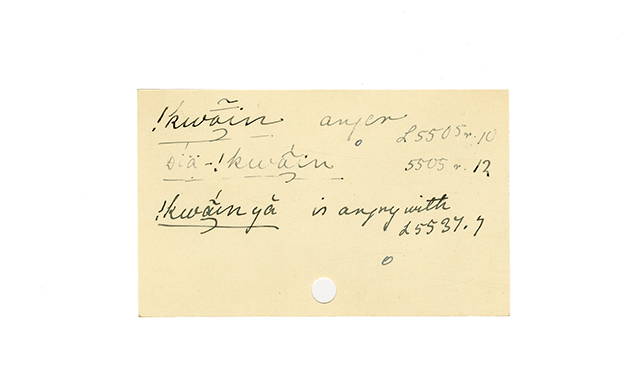 !kwā̃ịn anger L5505 r. 10
Ddïä-!kwā̃ịn 5505 r. 12
!kwā̃ịn yā̆ is angry with
L5537. 7